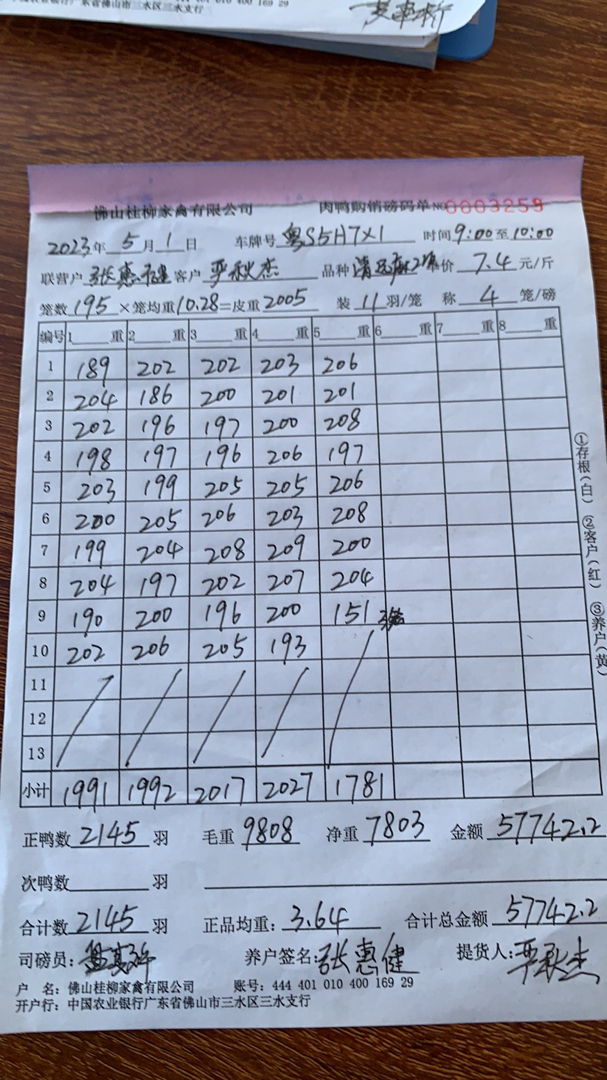 中国农业银行广东省佛山市三水区三水支行
佛山桂柳家禽有限公司 肉鸭购销磅码单 NO 0003259
2023年 5月 1日 车牌号 粤S5H7X1 时间 9:00 至 10:00
联营户 张惠健 客户 严秋杰 品种 价 7.4 元/斤
笼数 195 ×笼均重 10.28 =皮重 2005 装 11 羽/笼 称 4 笼/磅
编号 1 重 2 重 3 重 4 重 5 重 6 重 7 重 8 重
1 189 202 202 203 206
2 204 186 200 201 201
3 202 196 197 200 208
4 198 197 196 206 197
5 203 199 205 205 206
6 200 205 206 203 208
7 199 204 208 209 200
8 204 197 202 207 204
9 190 200 196 200 151 3笼
10 202 206 205 193
11
12
13
小计 1991 1992 2017 2027 1781
①存根(白) ②客户(红) ③养户(黄)
正鸭数 2145 羽 毛重 9808 净重 7803 金额 57742.2
次鸭数 羽
合计数 2145 羽 正品均重: 3.64 合计总金额 57742.2
司磅员: 养户签名: 张惠健 提货人: 严秋杰
户 名: 佛山桂柳家禽有限公司 账号: 444 401 010 400 169 29
开户行: 中国农业银行广东省佛山市三水区三水支行